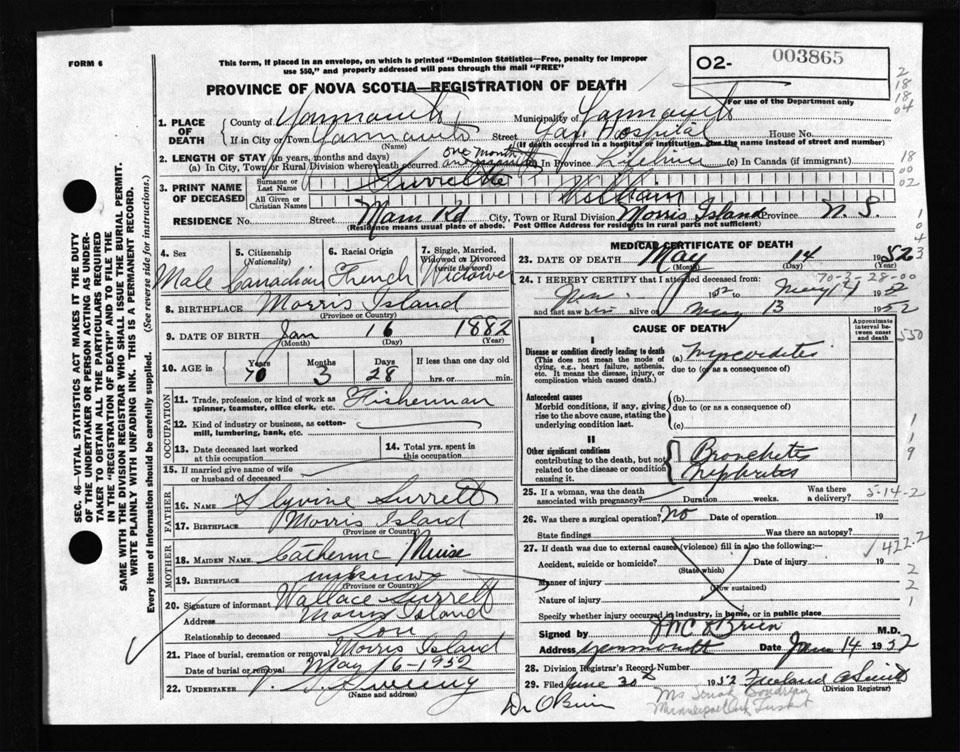 FORM 6
This form, if placed in an envelope, on which is printed "Dominion Statistics—Free, penalty for improper
use $50," and properly addressed will pass through the mail "FREE"
O2- 003865
PROVINCE OF NOVA SCOTIA—REGISTRATION OF DEATH
For use of the Department only
1. PLACE OF DEATH
County of Yarmouth Municipality of Yarmouth
If in City or Town Yarmouth Street Yar Hospital House No.
(Name) (If death occurred in a hospital or institution, give the name instead of street and number)
2. LENGTH OF STAY (in years, months and days)
(a) In City, Town or Rural Division where death occurred one month (b) In Province Lifetime (c) In Canada (if immigrant)
3. PRINT NAME OF DECEASED
Surname or Last Name Surrette
All Given or Christian Names William
RESIDENCE No. Street Main Rd City, Town or Rural Division Morris Island Province N. S.
(Residence means usual place of abode. Post Office Address for residents in rural parts not sufficient)
4. SEX Male
5. CITIZENSHIP (Nationality) Canadian
6. RACIAL ORIGIN French
7. Single, Married, Widowed or Divorced (write the word) Widower
8. BIRTHPLACE Morris Island
(Province or Country)
9. DATE OF BIRTH Jan 16 1882
(Month) (Day) (Year)
10. AGE IN Years 70 Months 3 Days 28 If less than one day old
hrs. or min.
OCCUPATION
11. Trade, profession, or kind of work as spinner, teamster, office clerk, etc. Fisherman
12. Kind of industry or business, as cotton-mill, lumbering, bank, etc.
13. Date deceased last worked at this occupation
14. Total yrs. spent in this occupation
15. If married give name of wife or husband of deceased
FATHER
16. NAME Slyvine Surrett
17. BIRTHPLACE Morris Island
(Province or Country)
MOTHER
18. MAIDEN NAME Catherine Muise
19. BIRTHPLACE unknown
(Province or Country)
20. Signature of informant Wallace Surrett
Address Morris Island
Relationship to deceased Son
21. Place of burial, cremation or removal Morris Island
Date of burial or removal May 16-1952
22. UNDERTAKER Sweeny
(Name and address)
MEDICAL CERTIFICATE OF DEATH
23. DATE OF DEATH May 14 1952
(Month) (Day) (Year)
70-3-28-00
24. I HEREBY CERTIFY that I attended deceased from:
1952 to May 14 1952
and last saw him alive on May 13 1952
CAUSE OF DEATH
Approximate interval between onset and death
I
Disease or condition directly leading to death
(This does not mean the mode of dying, e.g., heart failure, asthenia, etc. It means the disease, injury, or complication which caused death.)
(a) Myocarditis
due to (or as a consequence of)
Antecedent causes
Morbid conditions, if any, giving rise to the above cause, stating the underlying condition last.
(b)
due to (or as a consequence of)
(c)
II
Other significant conditions
contributing to the death, but not related to the disease or condition causing it.
Bronchitis
Nephrites
25. If a woman, was the death associated with pregnancy? Duration weeks. Was there a delivery? 5-14-2
26. Was there a surgical operation? No Date of operation 19
State findings Was there an autopsy?
27. If death was due to external causes (violence) fill in also the following:—
1422.2
Accident, suicide or homicide? Date of injury 19
(State which)
Manner of injury
(How sustained)
Nature of injury
Specify whether injury occurred in industry, in home, or in public place
Signed by O'Brien M.D.
Address Yarmouth Date June 14 1952
28. Division Registrar's Record Number
29. Filed June 30th 1952
(Division Registrar)
Dr O'Brien
SEC. 46—VITAL STATISTICS ACT MAKES IT THE DUTY
OF THE UNDERTAKER OR PERSON ACTING AS UNDER-
TAKER TO OBTAIN ALL THE PARTICULARS REQUIRED
IN THE "REGISTRATION OF DEATH" AND TO FILE THE
SAME WITH THE DIVISION REGISTRAR WHO SHALL ISSUE THE BURIAL PERMIT.
WRITE PLAINLY WITH UNFADING INK. THIS IS A PERMANENT RECORD.
Every item of information should be carefully supplied. (See reverse side for instructions.)